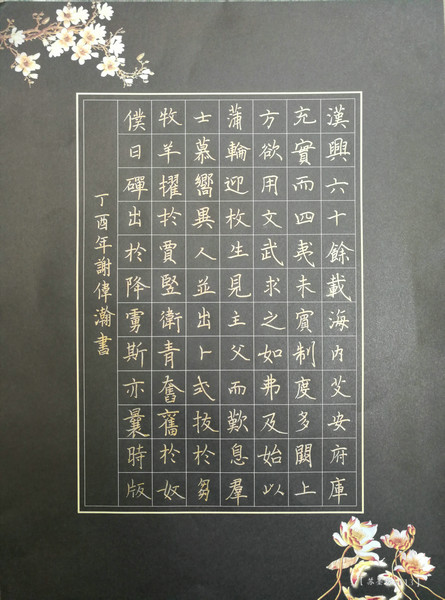 漢興六十餘載海内艾安府庫
充實而四夷未賓制度多闕上
方欲用文武求之如弗及始以
蒲輪迎枚生見主父而歎息羣
士慕嚮異人並出卜式拔於芻
牧羊擢於賈竪衛青奮舊於奴
僕日磾出於降虜斯亦曩時版
丁酉年謝偉瀚書